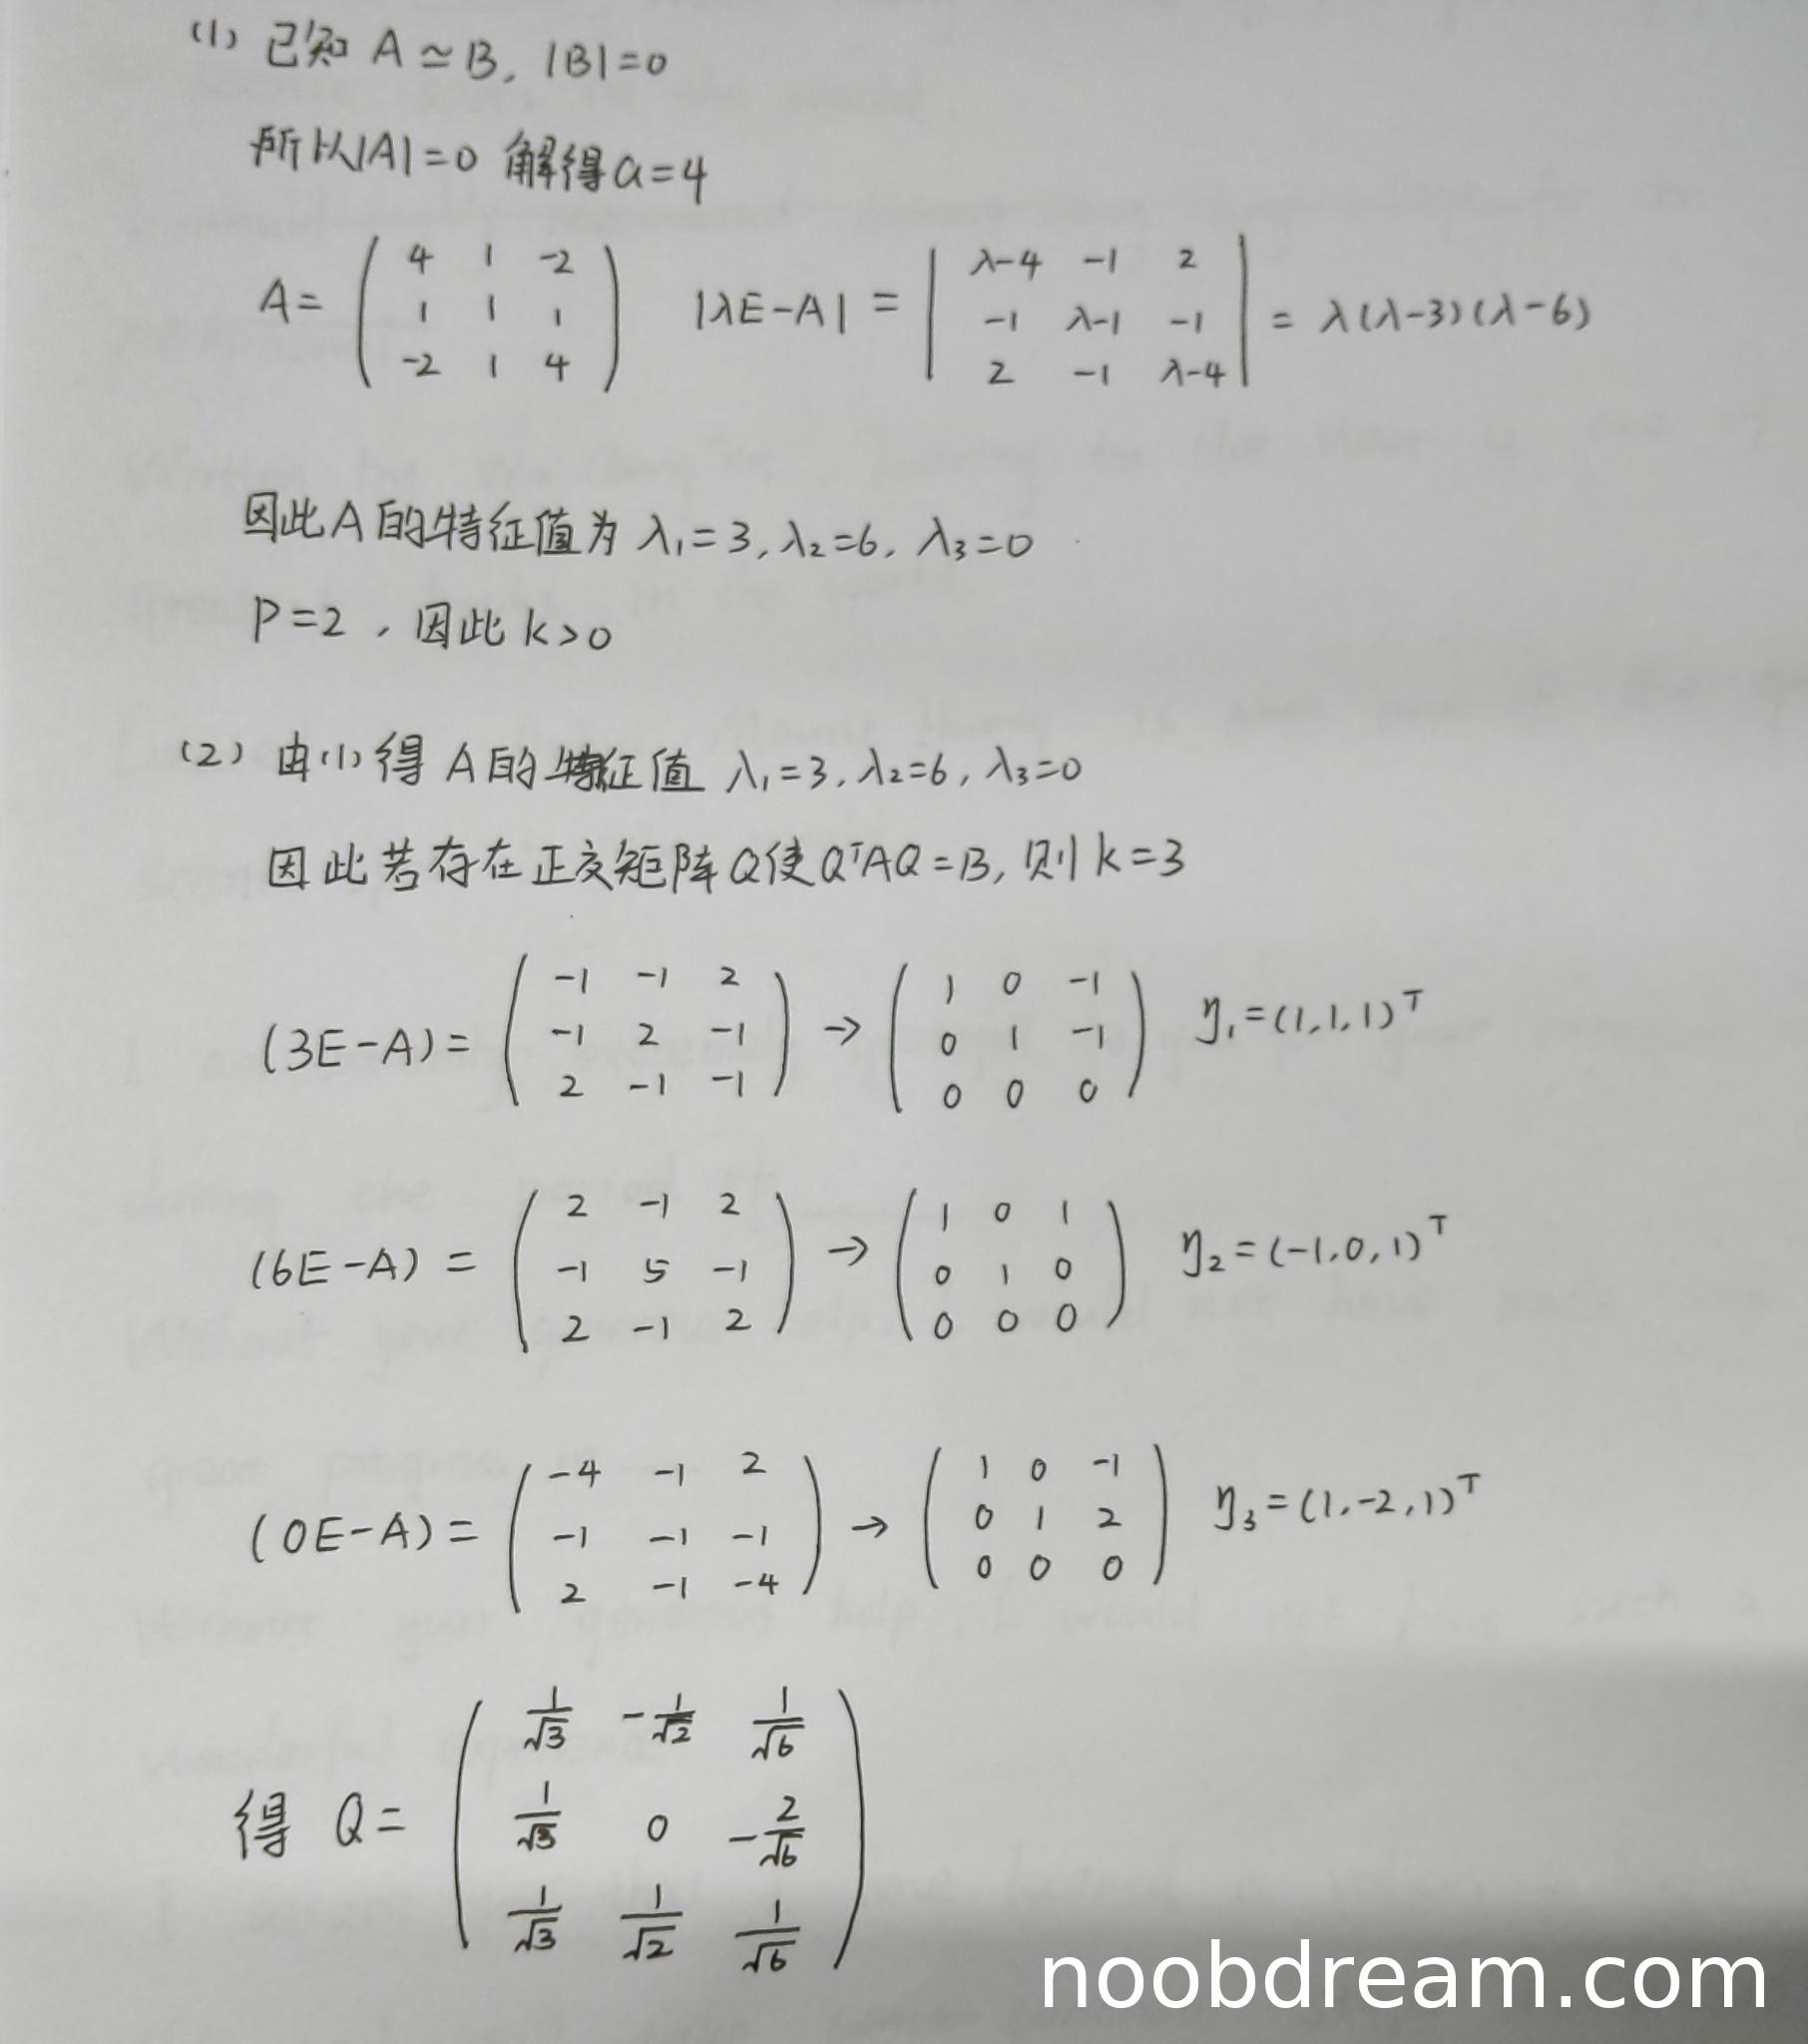 (1) 已知 A ≃ B, |B|=0
所以|A|=0 解得a=4
A= ( 4 1 -2 ; 1 1 1 ; -2 1 4 ) |λE-A| = | λ-4 -1 2 ; -1 λ-1 -1 ; 2 -1 λ-4 | = λ(λ-3)(λ-6)
因此A的特征值为 λ₁=3, λ₂=6, λ₃=0
P=2, 因此 k>0
(2) 由(1)得 A的特征值 λ₁=3, λ₂=6, λ₃=0
因此若存在正交矩阵Q使QᵀAQ=B, 则k=3
(3E-A)= ( -1 -1 2 ; -1 2 -1 ; 2 -1 -1 ) → ( 1 0 -1 ; 0 1 -1 ; 0 0 0 ) η₁=(1,1,1)ᵀ
(6E-A) = ( 2 -1 2 ; -1 5 -1 ; 2 -1 2 ) → ( 1 0 1 ; 0 1 0 ; 0 0 0 ) η₂=(-1,0,1)ᵀ
(0E-A)= ( -4 -1 2 ; -1 -1 -1 ; 2 -1 -4 ) → ( 1 0 -1 ; 0 1 2 ; 0 0 0 ) η₃=(1,-2,1)ᵀ
得 Q= ( 1/√3 -1/√2 1/√6 ; 1/√3 0 -2/√6 ; 1/√3 1/√2 1/√6 )
noobdream.com